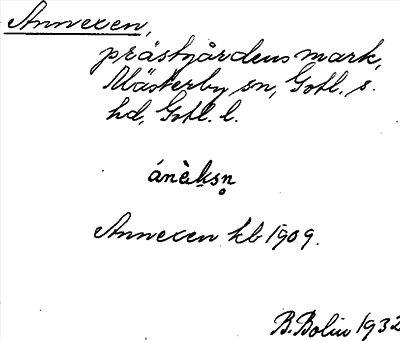 Annexen,
prästgårdens mark,
Mästerby sn, Gotl. s.
hd, Gotl. l.
ánèksn̥
Annexen kb 1909.
B. Bolin 1932